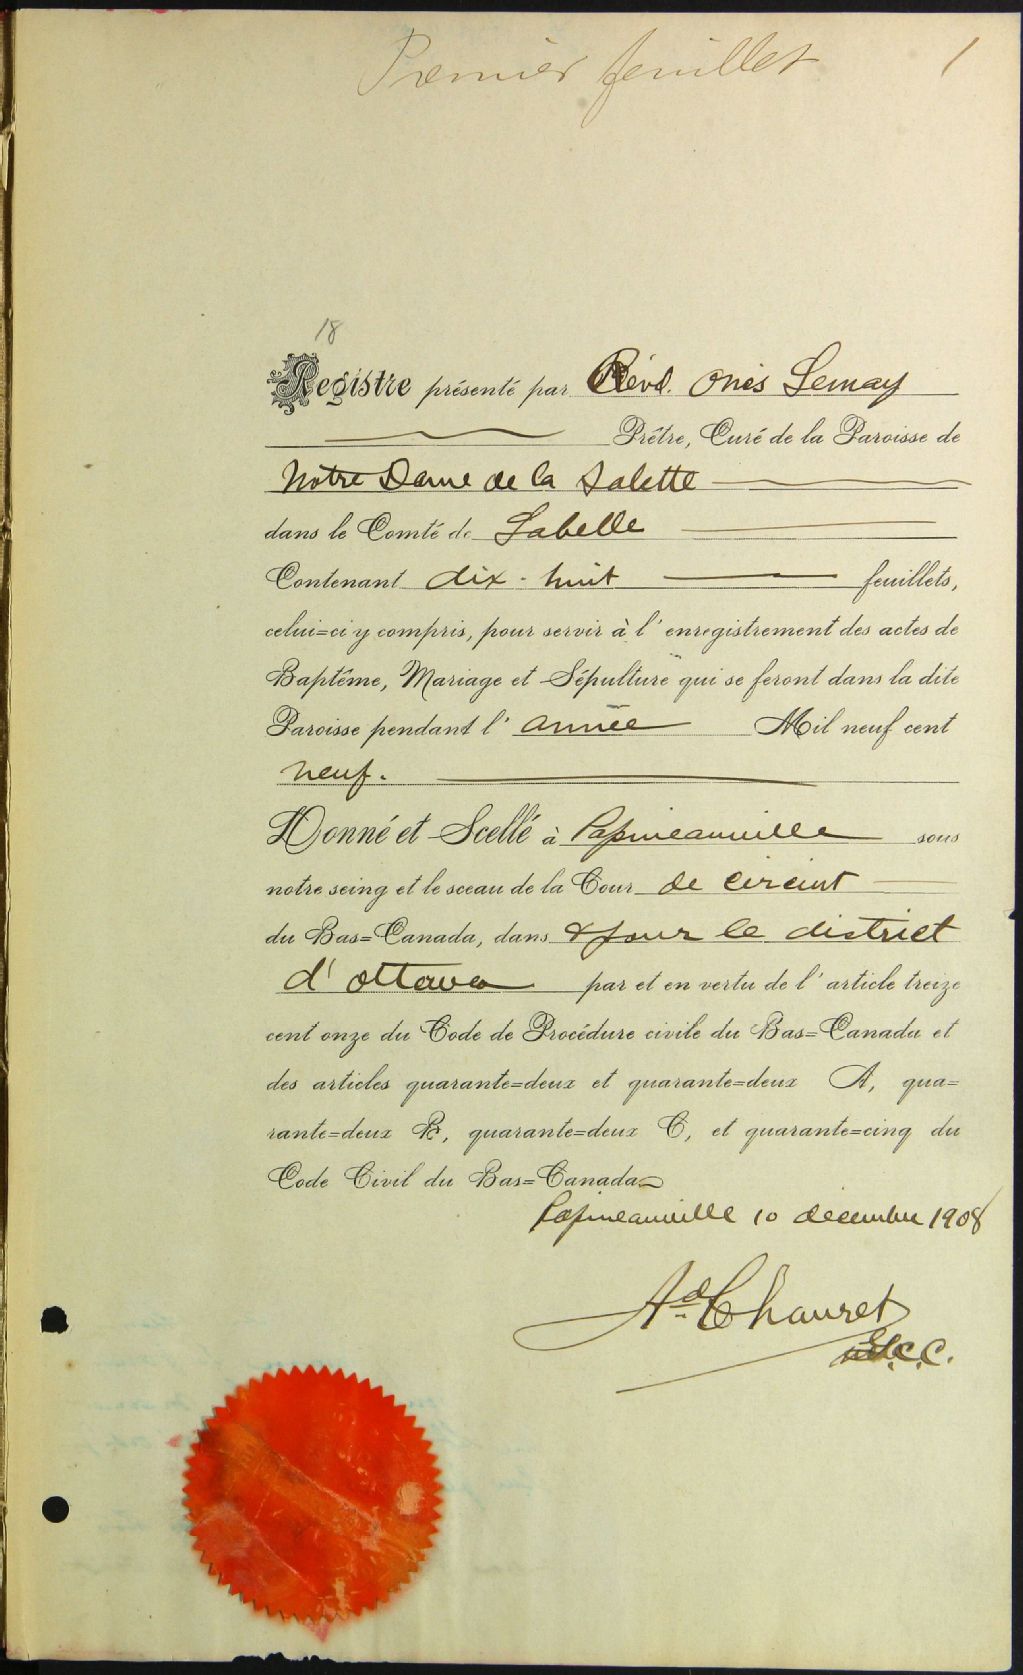 Premier feuillet 1
18
Registre présenté par Révd. Onés Lemay
Prêtre, Curé de la Paroisse de
Notre Dame de la Salette
dans le Comté de Labelle
Contenant dix-huit feuillets,
celui=ci y compris, pour servir à l'enregistrement des actes de
Baptême, Mariage et Sépulture qui se feront dans la dite
Paroisse pendant l'année Mil neuf cent
neuf.
Donné et Scellé à Papineauville sous
notre seing et le sceau de la Cour de circuit
du Bas=Canada, dans & pour le district
d'Ottawa par et en vertu de l'article treize
cent onze du Code de Procédure civile du Bas=Canada et
des articles quarante=deux et quarante=deux A, qua=
rante=deux B, quarante=deux C, et quarante=cinq du
Code Civil du Bas=Canada
Papineauville 10 decembre 1908
Ad Chauret
C.C.